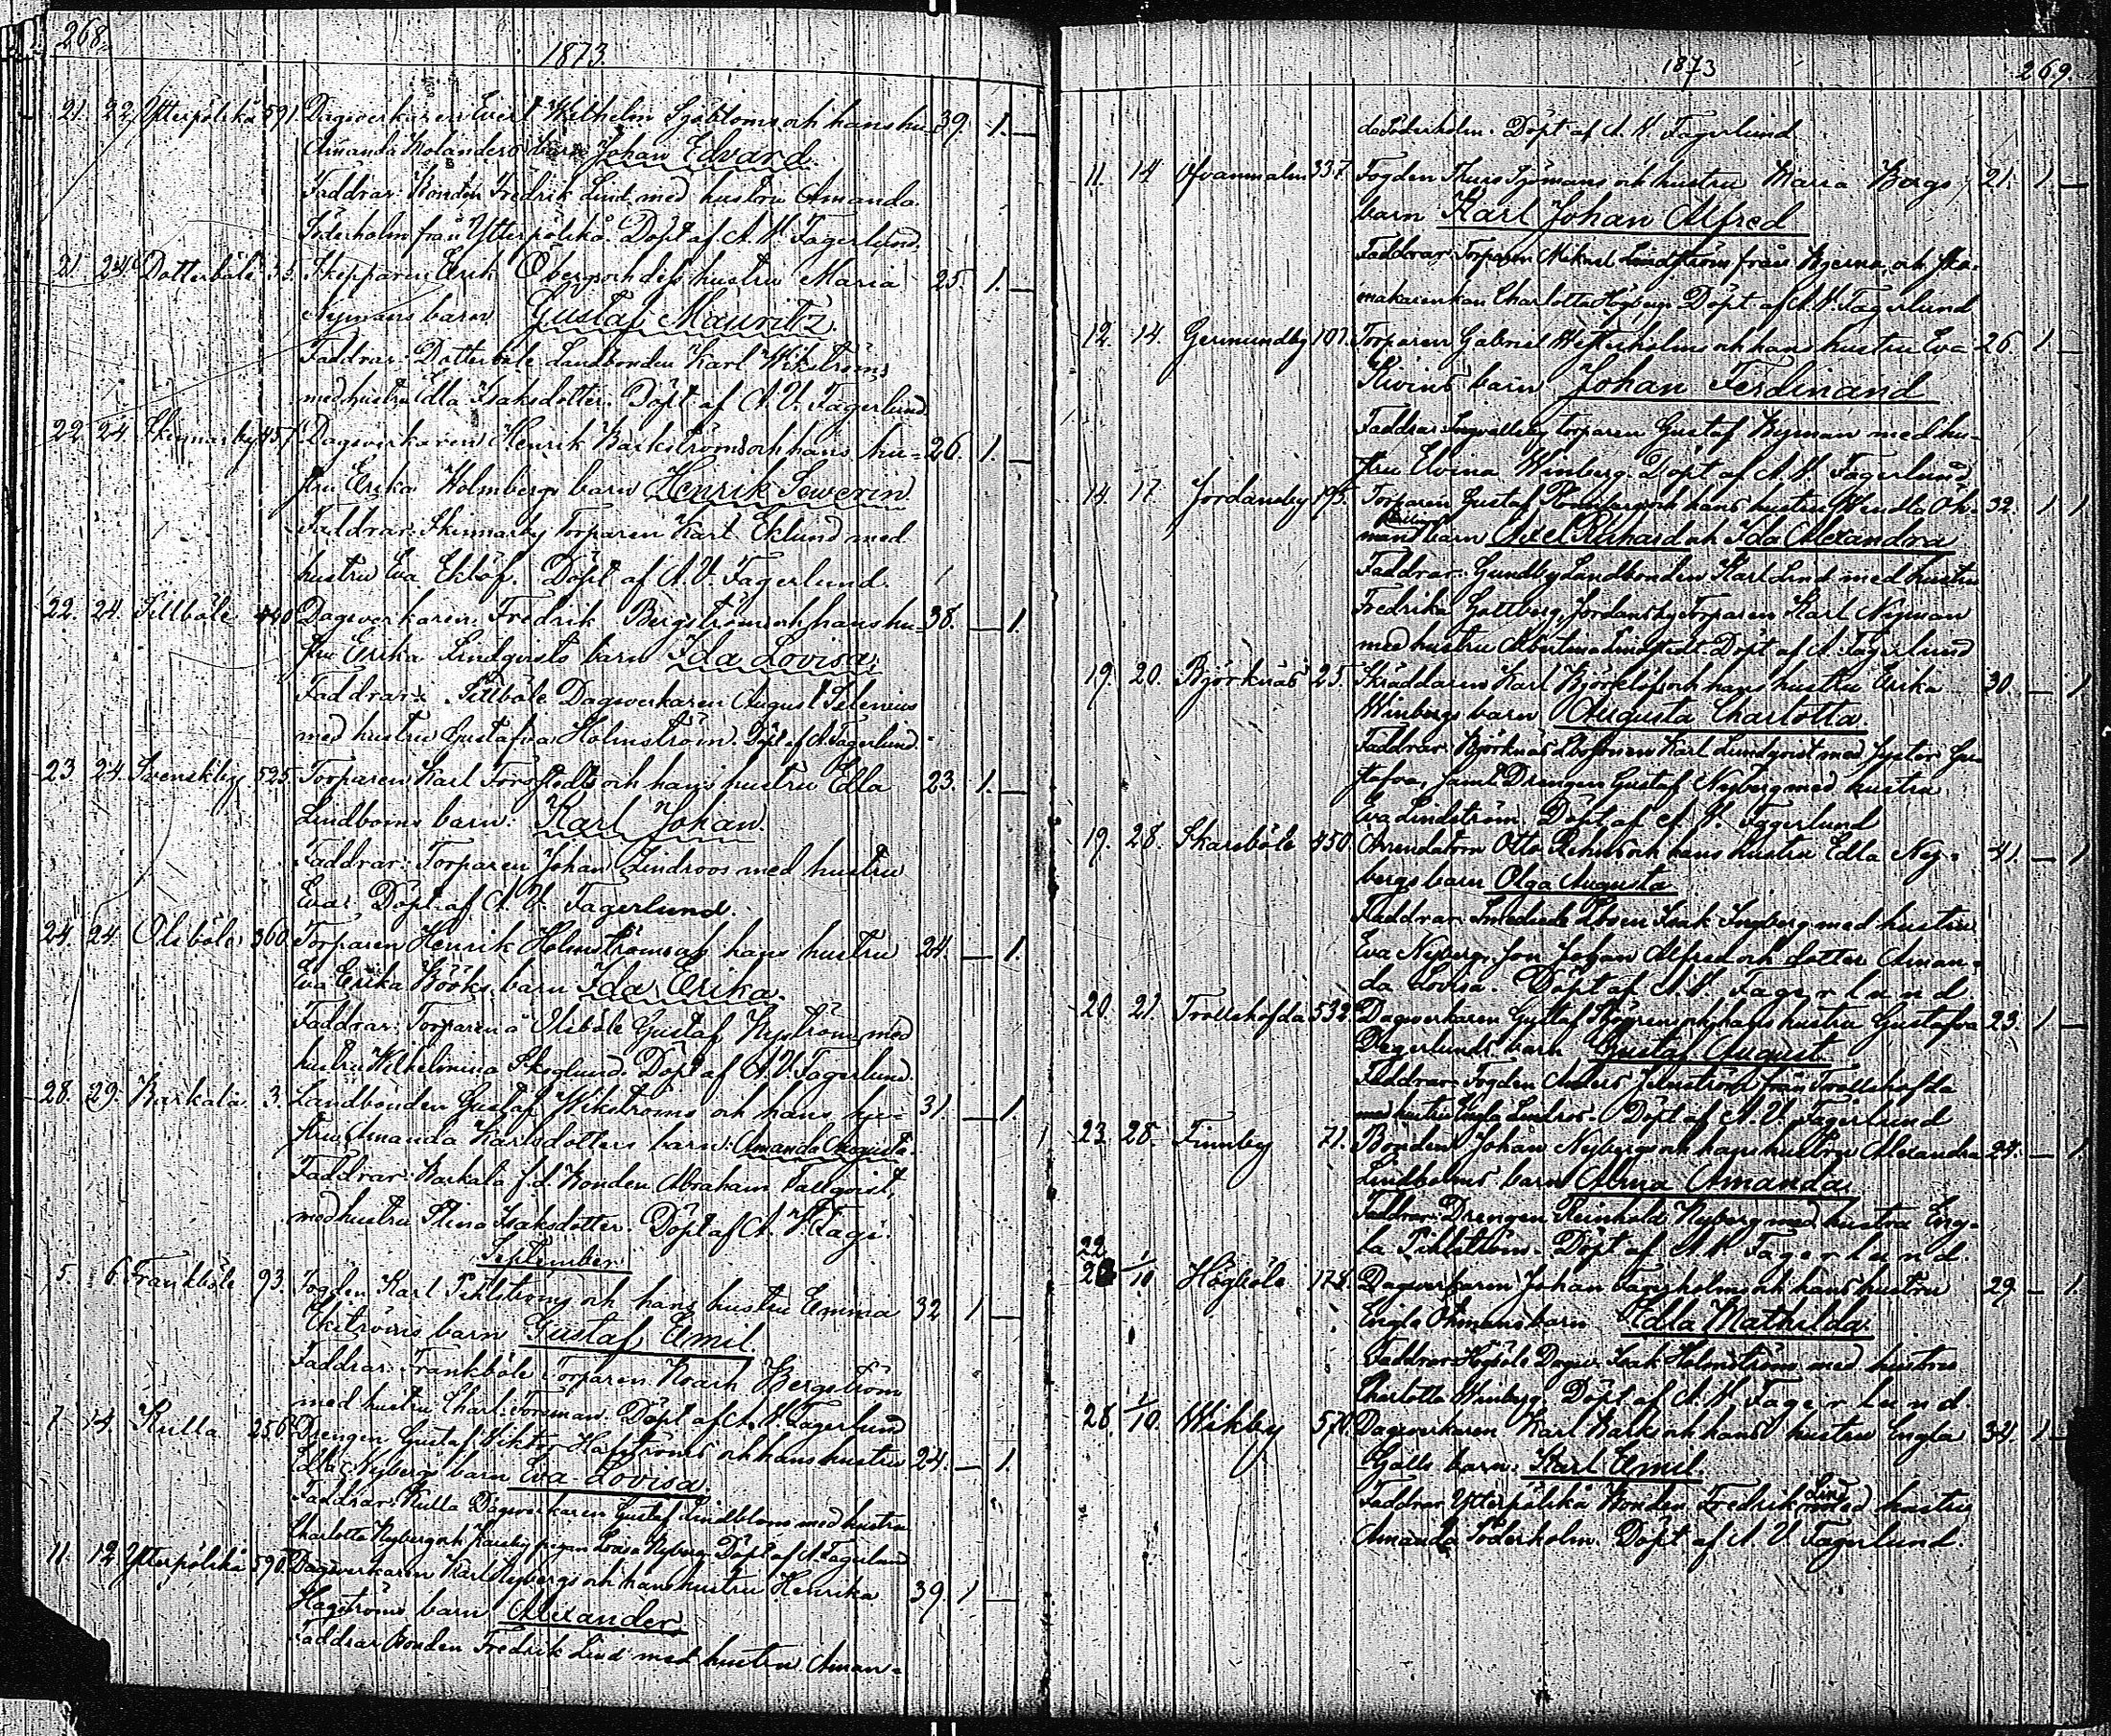 268.
1873.
21. 22. Ytterpölikä 591. Dagsverkaren Evert Wilhelm Sjöbloms och hans hu= 39. 1. —
Amanda Kolanders barn Johan Edvard.
Faddrar: Bonden Fredrik Lind med hustru Amanda
Söderholm från Ytterpölikä. Döpt af A. V. Fagerlund.
21. 24. Dotterböle 35. Skepparen Erik Öbergs och dess hustru Maria 25. 1. —
Nymans barn Gustaf Mauritz.
Faddrar: Dotterböle Landbonden Karl Wikström
med hustru Edla Isaksdotter. Döpt af A. V. Fagerlund.
22. 24. Skinnarby 457. Dagsverkaren Henrik Backströms och hans hu= 26. 1. —
stru Erika Holmbergs barn Henrik Sewerin
Faddrar: Skinnarby Torparen Karl Eklund med
hustru Eva Eklöf. Döpt af A. V. Fagerlund.
22. 24. Pillböle 440 Dagsverkaren Fredrik Bergströms och hans hu= 38. — 1.
stru Erika Lindqvists barn Ida Lovisa.
Faddrar: Pillböle Dagsverkaren August Selenius
med hustru Gustafva Holmström. Döpt af A. Fagerlund.
23. 24. Svenskby 525. Torparen Karl Forsstedts och hans hustru Edla 23. 1. —
Lindboms barn: Karl Johan.
Faddrar: Torparen Johan Lindroos med hustru
Eva. Döpt af A. V. Fagerlund.
24. 24. Olsböle 360. Torparen Henrik Holmströms af hans hustru 24. — 1.
Eva Erika Bööks barn Ida Erika.
Faddrar: Torparen å Olsböle Gustaf Nyström med
hustru Wilhelmina Skoglund. Döpt af A. V. Fagerlund.
28. 29. Barkala 3. Landbonden Gustaf Wikströms och hans hu= 31. — 1.
stru Amanda Karlsdotters barn: Amanda Augusta.
Faddrar: Barkala f.d. Bonden Abraham Tallqvist,
med hustru Stina Isaksdotter. Döpt af A. V. Fage.
September
5. 6. Frankböle 93. Fogden Karl Pihlströms och hans hustru Emma 32 1 —
Ekströms barn Gustaf Emil.
Faddrar: Frankböle Torparen Noach Bergström
med hustru Charl. Forsman. Döpt af A. V. Fagerlund
7. 14. Kulla 256. Drengen Gustaf Viktor Hagströms och hans hustru 24. — 1.
Edla Nybergs barn Eva Lovisa.
Faddrar: Kulla Dagsverkaren Gustaf Lindblom med hustru
Charlotta Nyberg och pigan Lovisa Nyberg. Döpt af A. Fagerlund
11. 12. Ytterpölikä 590. Dagsverkaren Karl Nybergs och hans hustru Henrika 39. 1 —
Hagströms barn Alexander.
Faddrar Bonden Fredrik Lind med hustru Aman=
1873
269.
da Söderholm. Döpt af A. V. Fagerlund
11. 14. Ofvanmalm 337. Fogden Thure Sjömans och hustru Maria Bergs 21. 1. —
barn Karl Johan Alfred
Faddrar: Torparen Mikael Lindström från Bjerna, och sko=
makarenkan Charlotta Högberg. Döpt af A. V. Fagerlund
12. 14. Germundby 107. Torparen Gabriel Westerholms och hans hustru Eva 26. 1. —
Kivins barn Johan Ferdinand
Faddrar: Ingvallsby torparen Gustaf Byman med hu=
stru Elvina Winberg. Döpt af A. V. Fagerlund
14. 17. Jordansby 195. Torparen Gustaf Rönnbergs och hans hustru Wendla Öh= 32. 1 1
mans barn Axel Richard och Ida Alexandra
Faddrar: Gundby Landbonden Karl Lind med hustru
Fredrika Gottberg, Jordansby Torparen Karl Nyman
med hustru Albertina Lindstedt. Döpt af A. Fagerlund
19. 20. Björknäs 25. Skräddaren Karl Björklöfs och hans hustru Erika 30 — 1
Winbergs barn Augusta Charlotta.
Faddrar: Björknäs Karl Lundqvist med syster Gu=
stafva, samt Drengen Gustaf Nyberg med hustru
Eva Lindström. Döpt af A. V. Fagerlund
19. 28. Skarsböle 450. Arrendatorn Otto Rehns och hans hustru Edla Ny= 41. — 1
bergs barn Olga Augusta
Faddrar: Smedseds Isak Ingberg med hustru
Eva Nyberg, son Johan Alfred och dotter Aman=
da Lovisa. Döpt af A. V. Fagerlund.
20. 21. Trollshofda 532. Dagsverkaren Gustaf Sjögrens och hans hustru Gustafva 23. 1 —
Degerlunds barn Gustaf August.
Faddrar: Fogden Anders från Trollshofda
med hustru Engla Lindros. Döpt af A. V. Fagerlund
23. 28. Finnby 71. Bonden Johan Nybergs och hans hustru Alexandra 24. — 1
Lindholms barn Alma Amanda.
Faddrar: Drengen Reinhold Nyberg med hustru Eng=
la Pihlström. Döpt af A. V. Fagerlund.
22
1/10 Högböle 178. Dagsverkaren Johan Fagerholms och hans hustru 29. — 1.
Engla Öhmans barn Edla Mathilda.
Faddrar: Högböle Dagsv. Isak Holmström med hustru
Charlotta Winberg. Döpt af A. V. Fagerlund.
28. 1/10. Wikby 570. Dagsverkaren Karl Barks och hans hustru Engla 34 1 —
Gjälls barn. Karl Emil.
Faddrar Ytterpölikä Bonden Fredrik Lind med hustru
Amanda Söderholm. Döpt af A. V. Fagerlund.